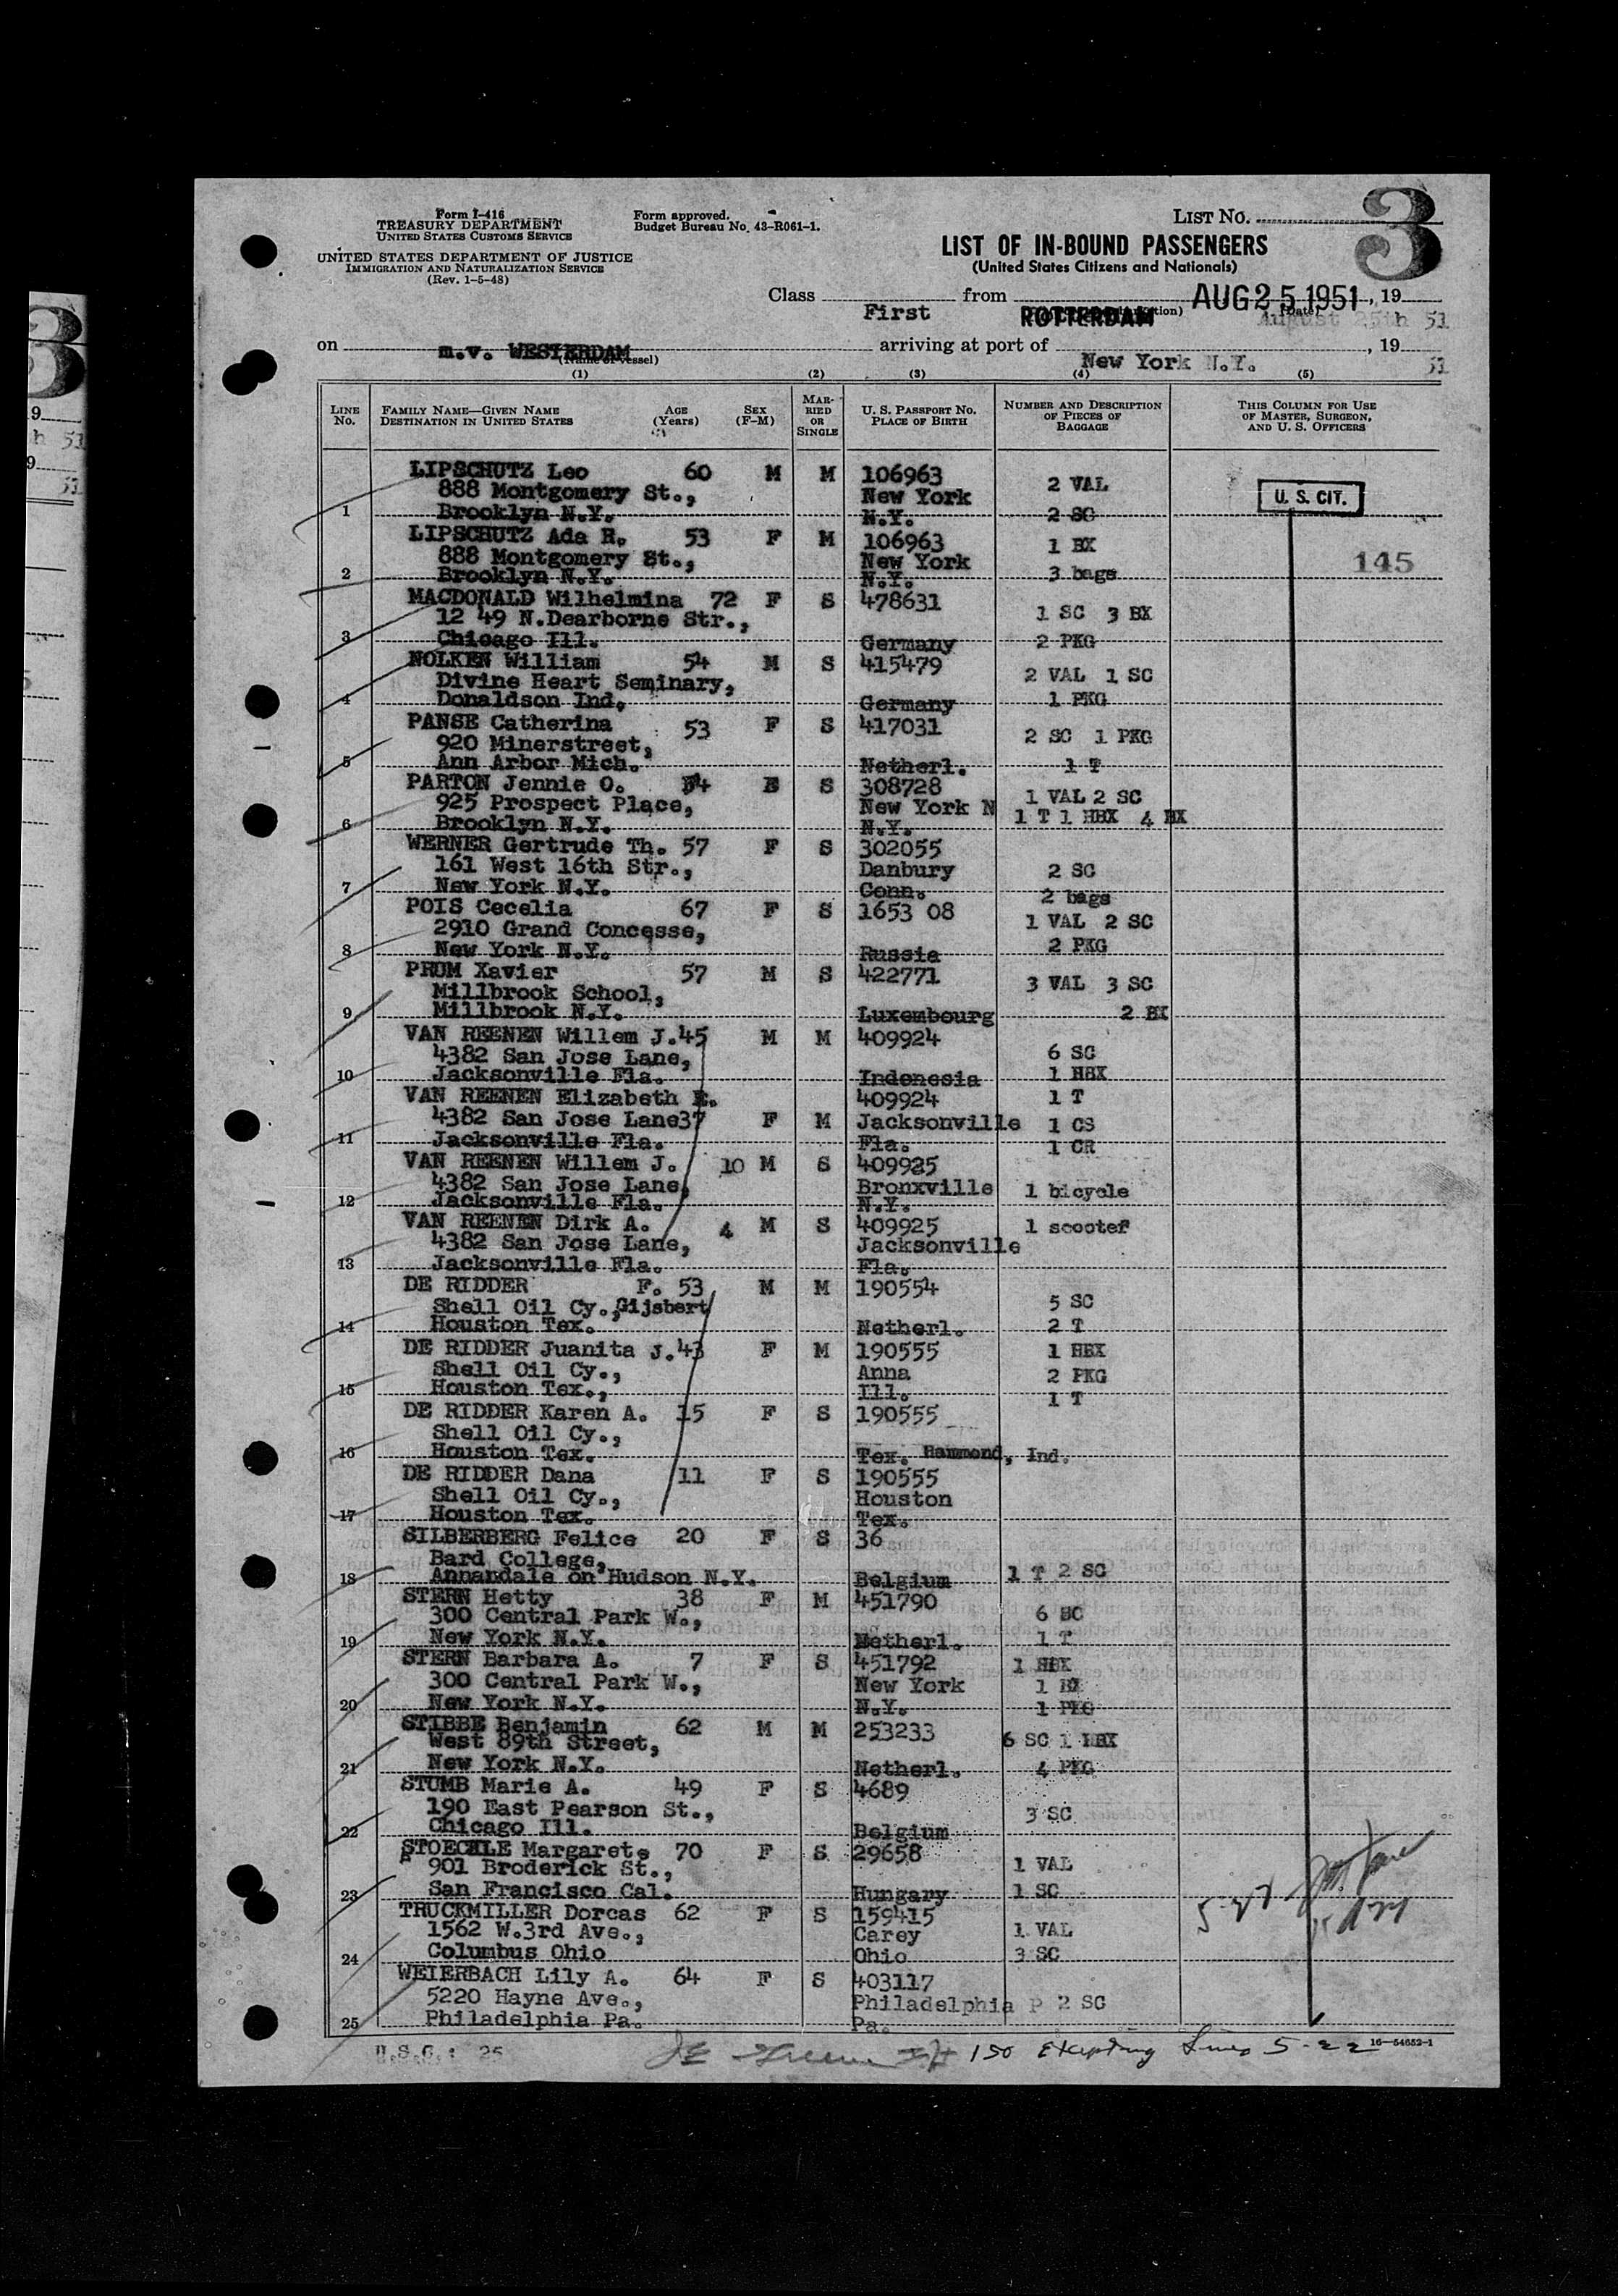 Form I-416
TREASURY DEPARTMENT
UNITED STATES CUSTOMS SERVICE
UNITED STATES DEPARTMENT OF JUSTICE
IMMIGRATION AND NATURALIZATION SERVICE
(Rev. 1-5-48)
Form approved.
Budget Bureau No. 43-R061-1.
LIST NO. 3
LIST OF IN-BOUND PASSENGERS
(United States Citizens and Nationals)
Class First from ROTTERDAM AUG 25 1951, 19
(Date)
August 25th 51
on m.v. WESTERDAM arriving at port of New York N.Y., 19 51
(Name of vessel)
(1) (2) (3) (4) (5)
LINE NO. FAMILY NAME—GIVEN NAME DESTINATION IN UNITED STATES AGE (Years) SEX (F-M) MARRIED OR SINGLE U. S. PASSPORT NO. PLACE OF BIRTH NUMBER AND DESCRIPTION OF PIECES OF BAGGAGE THIS COLUMN FOR USE OF MASTER, SURGEON, AND U. S. OFFICERS
LIPSCHUTZ Leo 60 M M 106963
888 Montgomery St., New York 2 VAL U. S. CIT.
1 Brooklyn N.Y. N.Y. 2 SC
LIPSCHUTZ Ada R. 53 F M 106963 1 BX
888 Montgomery St., New York 145
2 Brooklyn N.Y. N.Y. 3 bags
MACDONALD Wilhelmina 72 F S 478631
12 49 N.Dearborne Str., 1 SC 3 BX
3 Chicago Ill. Germany 2 PKG
NOLKEN William 54 M S 415479
Divine Heart Seminary, 2 VAL 1 SC
4 Donaldson Ind. Germany 1 PKG
PANSE Catherina 53 F S 417031
920 Minerstreet, 2 SC 1 PKG
5 Ann Arbor Mich. Netherl. 1 T
PARTON Jennie O. S 308728
925 Prospect Place, New York N 1 VAL 2 SC
6 Brooklyn N.Y. N.Y. 1 T 1 HBX 4 BX
WERNER Gertrude Th. 57 F S 302055
161 West 16th Str., Danbury 2 SC
7 New York N.Y. Conn. 2 bags
POIS Cecelia 67 F S 1653 08
2910 Grand Concesse, 1 VAL 2 SC
8 New York N.Y. Russia 2 PKG
PRUM Xavier 57 M S 422771
Millbrook School, 3 VAL 3 SC
9 Millbrook N.Y. Luxembourg 2 BX
VAN REENEN Willem J. 45 M M 409924
4382 San Jose Lane, 6 SC
10 Jacksonville Fla. Indonesia 1 HBX
VAN REENEN Elizabeth E. 409924 1 T
4382 San Jose Lane 37 F M Jacksonville 1 CS
11 Jacksonville Fla. Fla. 1 CR
VAN REENEN Willem J. 10 M S 409925
4382 San Jose Lane, Bronxville 1 bicycle
12 Jacksonville Fla. N.Y.
VAN REENEN Dirk A. 4 M S 409925 1 scooter
4382 San Jose Lane, Jacksonville
13 Jacksonville Fla. Fla.
DE RIDDER F. 53 M M 190554
Shell Oil Cy., Gijsbert 5 SC
14 Houston Tex. Netherl. 2 T
DE RIDDER Juanita J. 43 F M 190555 1 HBX
Shell Oil Cy., Anna 2 PKG
15 Houston Tex., Ill. 1 T
DE RIDDER Karen A. 15 F S 190555
Shell Oil Cy.,
16 Houston Tex. Tex. Hammond, Ind.
DE RIDDER Dana 11 F S 190555
Shell Oil Cy., Houston
17 Houston Tex. Tex.
SILBERBERG Felice 20 F S 36
Bard College,
18 Annandale on Hudson N.Y. Belgium 1 T 2 SC
STERN Hetty 38 F M 451790
300 Central Park W., 6 SC
19 New York N.Y. Netherl. 1 T
STERN Barbara A. 7 F S 451792 1 HBX
300 Central Park W., New York 1 BX
20 New York N.Y. N.Y. 1 PKG
STIBBE Benjamin 62 M M 253233
West 89th Street, 6 SC 1 HBX
21 New York N.Y. Netherl. 4 PKG
STUMB Marie A. 49 F S 4689
190 East Pearson St., 3 SC
22 Chicago Ill. Belgium
STOECKLE Margarete 70 F S 29658
901 Broderick St., 1 VAL
23 San Francisco Cal. Hungary 1 SC
TRUCKMILLER Dorcas 62 F S 159415
1562 W.3rd Ave., Carey 1 VAL
24 Columbus Ohio Ohio 3 SC
WEIERBACH Lily A. 64 F S 403117
5220 Hayne Ave., Philadelphia P 2 SC
25 Philadelphia Pa. Pa.
U.S.C.: 25 150 Excepting Lines 5-22 16—54652-1